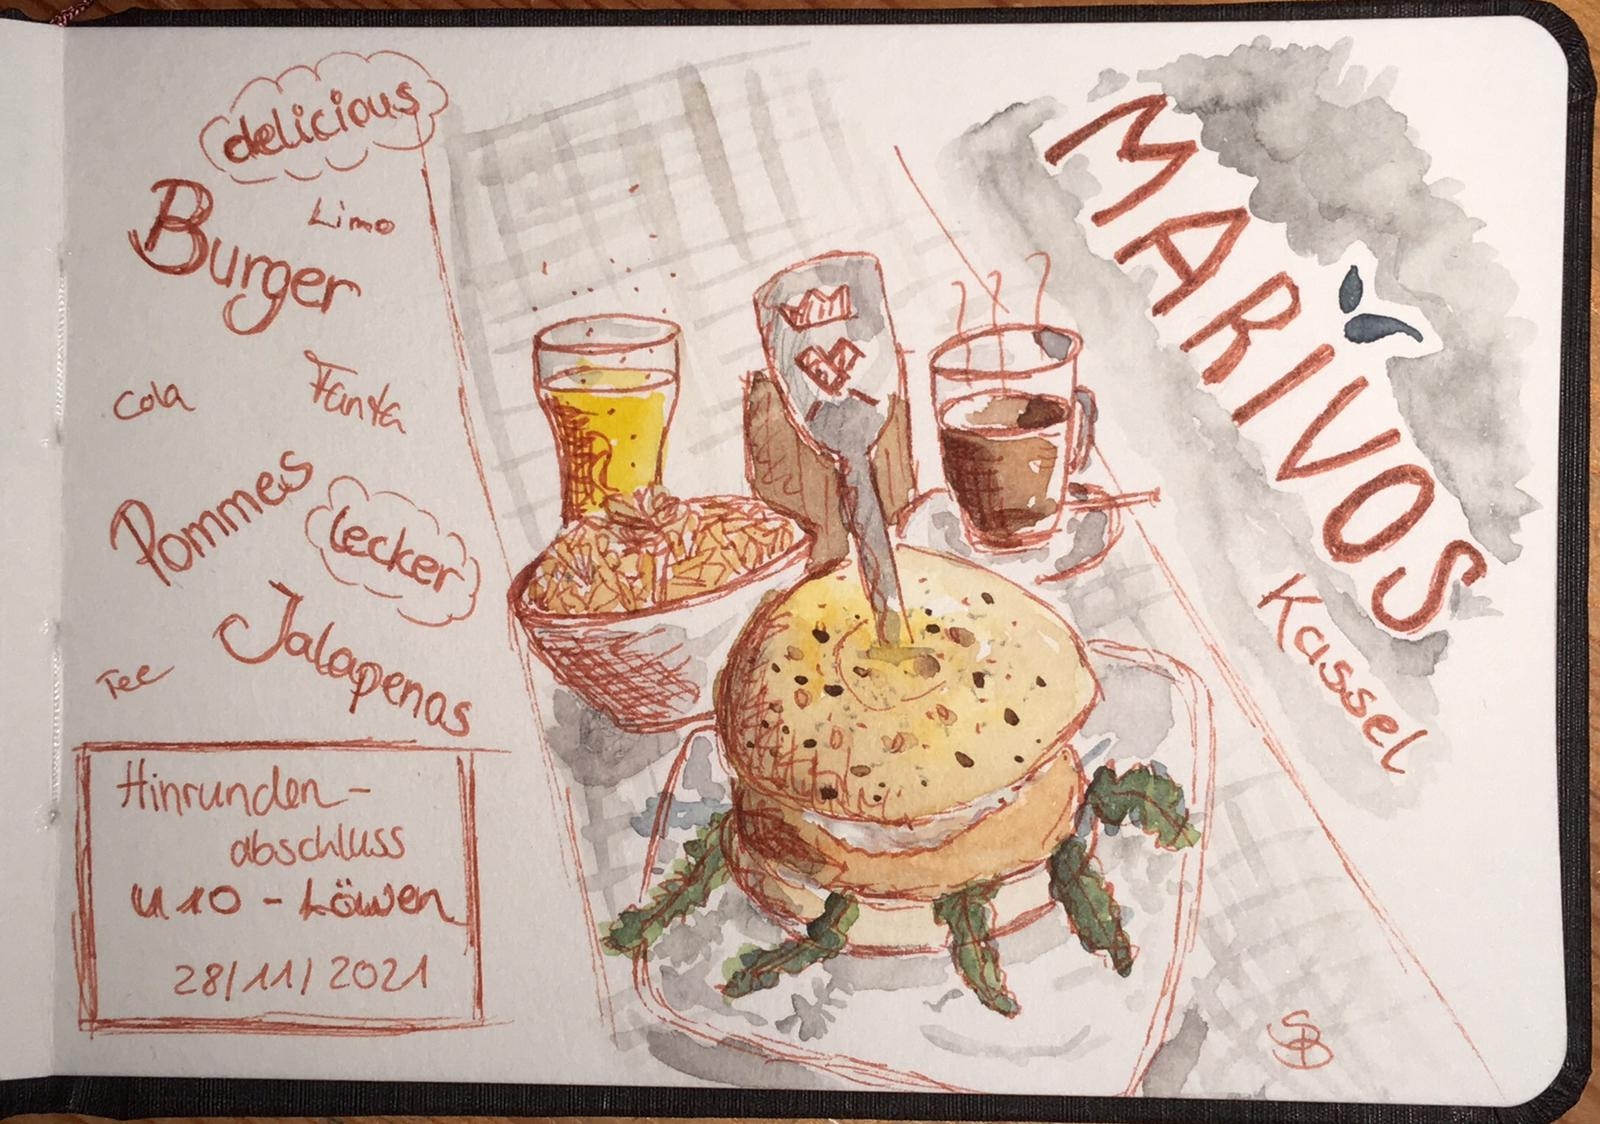 delicious
Burger
Limo
Cola
Fanta
Pommes
lecker
Jalapenos
Tee
Hinrunden-
abschluss
U10 - Löwen
28/11/2021
MARIVOS
Kassel
SB